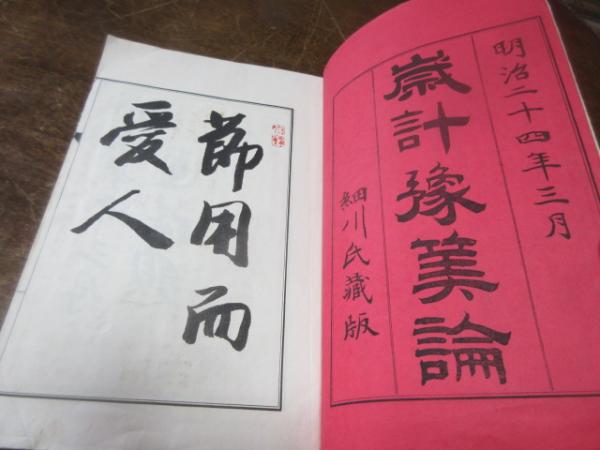 明治二十四年三月
歳計豫筭論
細川氏藏版
節用而
愛人